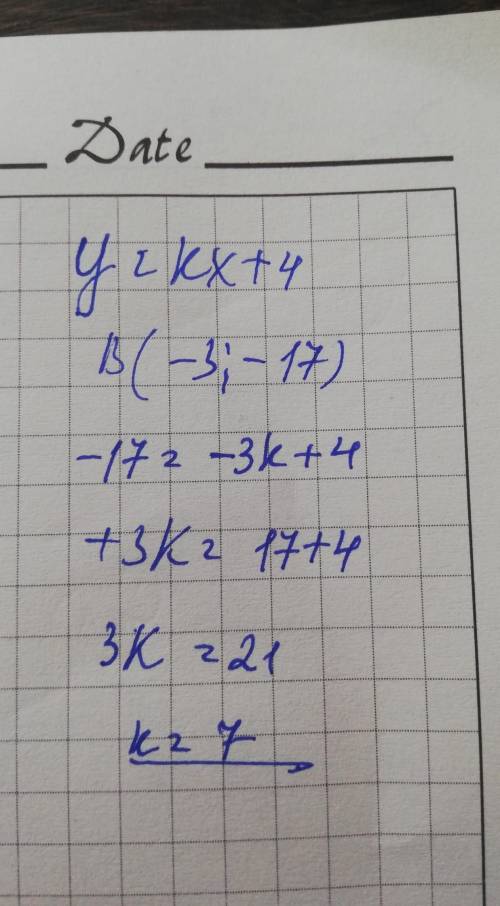 Date
y = kx + 4
B(-3; -17)
-17 = -3k + 4
+3k = 17 + 4
3k = 21
k = 7